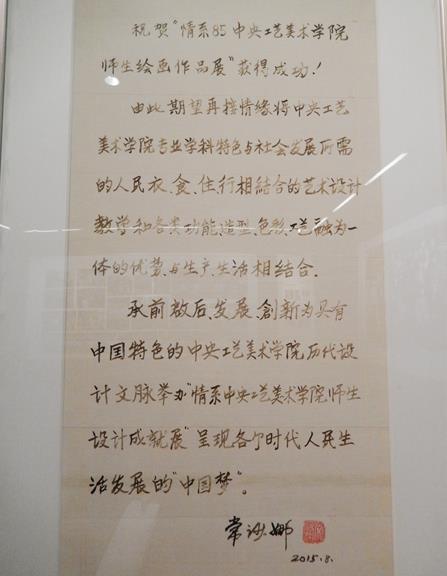 祝贺“情系85中央工艺美术学院
师生绘画作品展”获得成功！
由此期望再接情缘将中央工艺
美术学院专业学科特色与社会发展所需
的人民衣、食、住、行相结合的艺术设计
教学和各类功能、造型、色彩、工艺融为一
体的优势、与生产、生活相结合.
承前啟后、发展、創新为具有
中国特色的中央工艺美术学院历代设
计文脉举办“情系中央工艺美术学院师生
设计成就展”呈现各个时代人民生
活发展的“中国梦”。
常沙娜
2015.8.